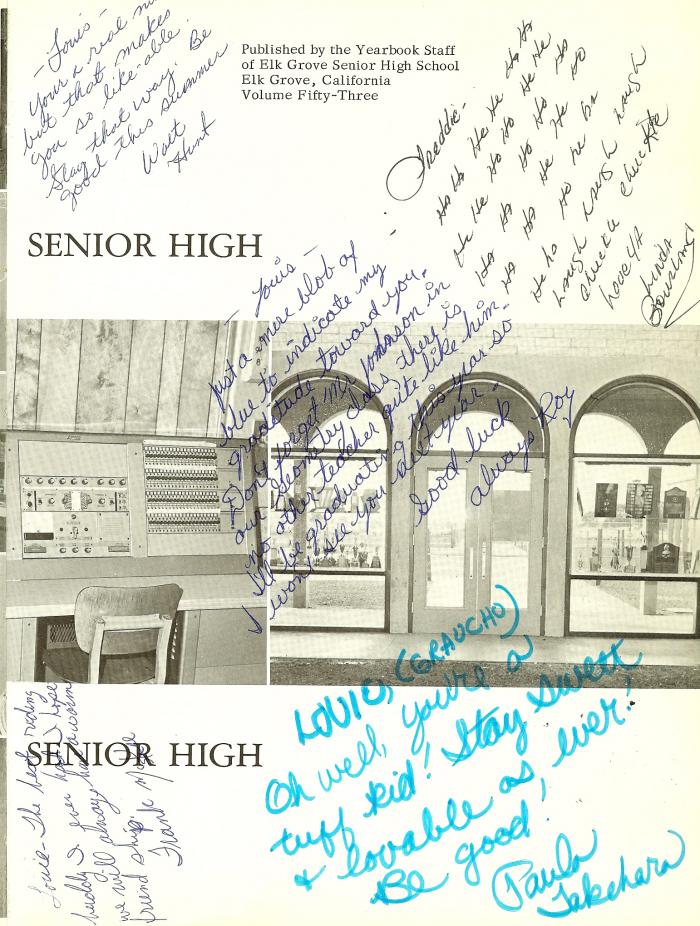 - Louis -
Your a real
but that makes
you so like-able.
Stay that way. Be
good this summer
Walt
Hunt
Published by the Yearbook Staff
of Elk Grove Senior High School
Elk Grove, California
Volume Fifty-Three
Freddie-
Ha Ha
Ha Ha He He He He Ha
He He Ho Ho Ho Ho
Ha Ha He He
Ha Ha Ho
He ho
Laugh Laugh Laugh Laugh
chuckle chuckle chuckle
love ya
Linda
SENIOR HIGH
- Louis -
Just a mere blob of
blue to indicate my
gradetude toward you.
Don't forget Mr Johnson in
our Geometry class there is
no other teacher quite like him.
I'll be graduating this year so
I won't see you next year -
Good luck
always Roy
LOUIE, (GRAUCHO)
Oh well, you're a
tuff kid! Stay Sweet
& lovable as ever!
Be good!
Paula
Takehara
SENIOR HIGH
Louie - The best riding
buddy I ever had. I hope
we will always have a warm
friend ship.
Frank